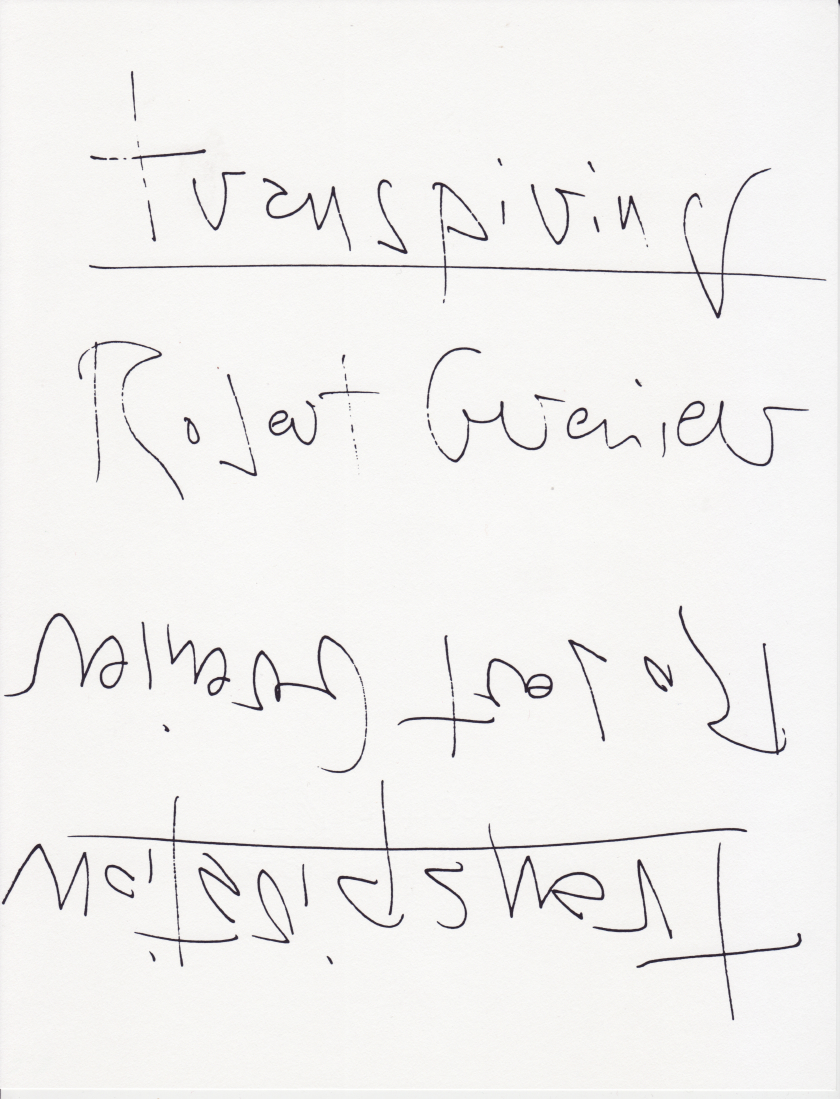 transpiring
Robert Grenier
transpiration
Robert Grenier